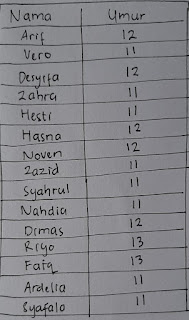 Nama Umur
Arif 12
Vero 11
Desyifa 12
Zahra 11
Hesti 11
Hasna 12
Noven 12
Zazid 11
Syahrul 11
Nahdia 11
Dimas 12
Riyo 13
Faiq 13
Ardelia 11
Syafalo 11